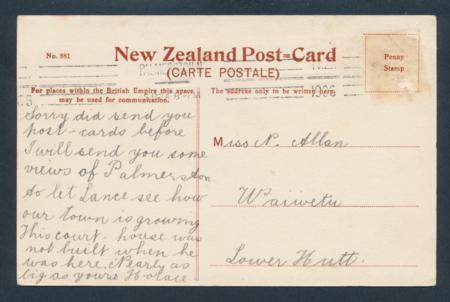 No. 881
New Zealand Post=Card
(CARTE POSTALE)
Penny
Stamp
PALMERSTON
1906
For places within the British Empire this space
may be used for communication.
The address only to be written here
Sorry did send you
post-cards before
I will send you some
views of Palmerston
so let Lance see how
our town is growing
This court-house was
not built when he
was here. Nearly as
big as yours Horace
Miss N. Allan
Waiwetu
Lower Hutt.